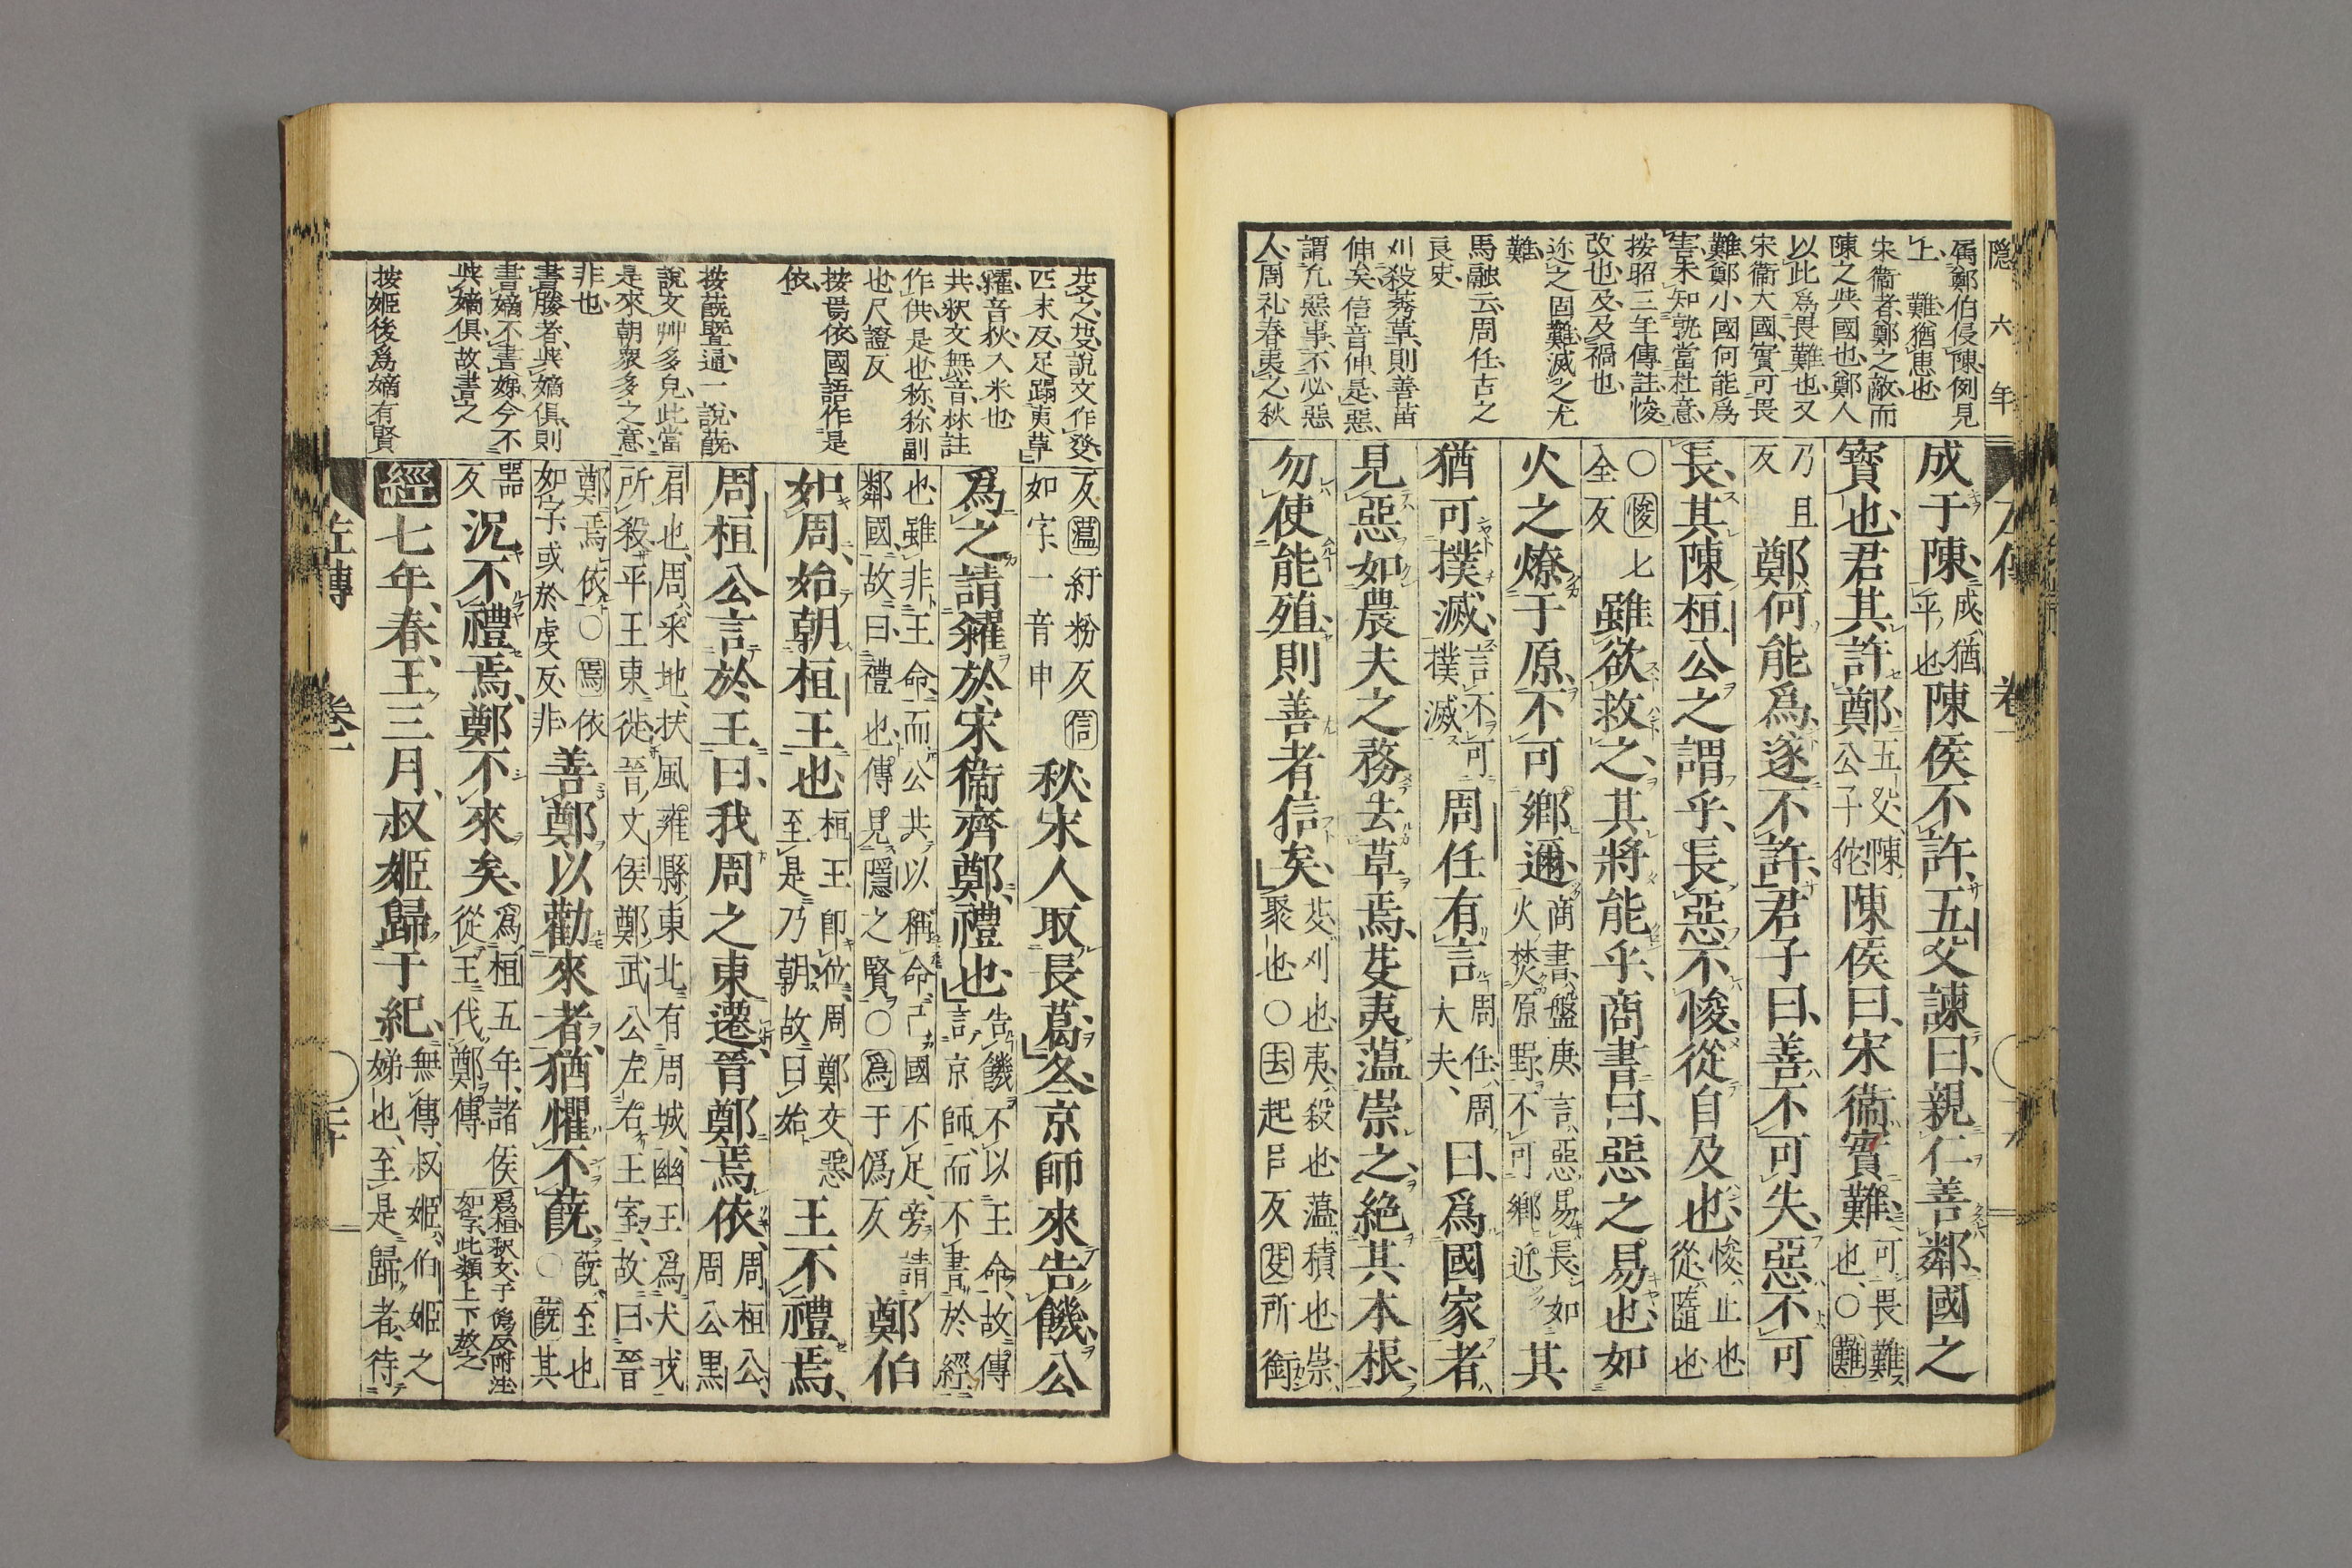 隠六年
屬鄭伯侵陳例見
上 難猶患也
宋衞者鄭之敵而
陳之與國也鄭人
以此爲畏難也又
宋衞大國實可畏
難鄭小國何能爲
害未知孰當杜意
按昭三年傳註悛
改也及及禍也
迩之固難滅之尤
難
馬融云周任古之
良史
刈殺莠草則善苗
伸矣信音伸是惡
謂凢惡事不必惡
人周礼春夷之秋
成于陳成猶平也陳侯不許五父諫曰親仁善鄰國之
寶也君其許鄭五父陳公子佗陳侯曰宋衞實難可畏難也○難
乃且反鄭何能爲遂不許君子曰善不可失惡不可
長其陳桓公之謂乎長惡不悛從自及也悛止也從隨也
○悛七全反雖欲救之其將能乎商書曰惡之易也如
火之燎于原不可鄉邇商書盤庚言惡易長如火焚原野不可鄉近其
猶可撲滅言不可撲滅周任有言周任周大夫曰爲國家者
見惡如農夫之務去草焉芟夷蘊崇之絶其本根
勿使能殖則善者信矣芟刈也夷殺也蘊積也崇聚也○去起呂反芟所銜
芟之芟說文作癹
匹末反足蹋夷草
糴音狄入米也
共釈文無音林註
作供是也称称副
也尺證反
按焉依國語作是
依
按蔇曁通一說蔇
說文艸多皃此當
是來朝衆多之意
非也
書媵者與嫡俱則
書嫡不書娣今不
與嫡俱故書之
按姬後爲嫡有賢
反薀紆粉反信如字一音申秋宋人取長葛冬京師來告饑公
爲之請糴於宋衞齊鄭禮也告饑不以王命故傳言京師而不書於經
也雖非王命而公共以稱命己國不足旁請鄰國故曰禮也傳見隱之賢○爲于僞反鄭伯
如周始朝桓王也桓王即位周鄭交惡至是乃朝故曰始王不禮焉
周桓公言於王曰我周之東遷晉鄭焉依周桓公周公黒
肩也周采地扶風雍縣東北有周城幽王爲犬戎所殺平王東徙晉文侯鄭武公左右王室故曰晉
鄭焉依○焉依如字或於虔反非善鄭以勸來者猶懼不蔇蔇至也○蔇其
器反況不禮焉鄭不來矣爲桓五年諸侯從王伐鄭傳爲桓釈文于僞反附注如字此類上下放之
經七年春王三月叔姬歸于紀無傳叔姬伯姬之娣也至是歸者待
左傳 卷一